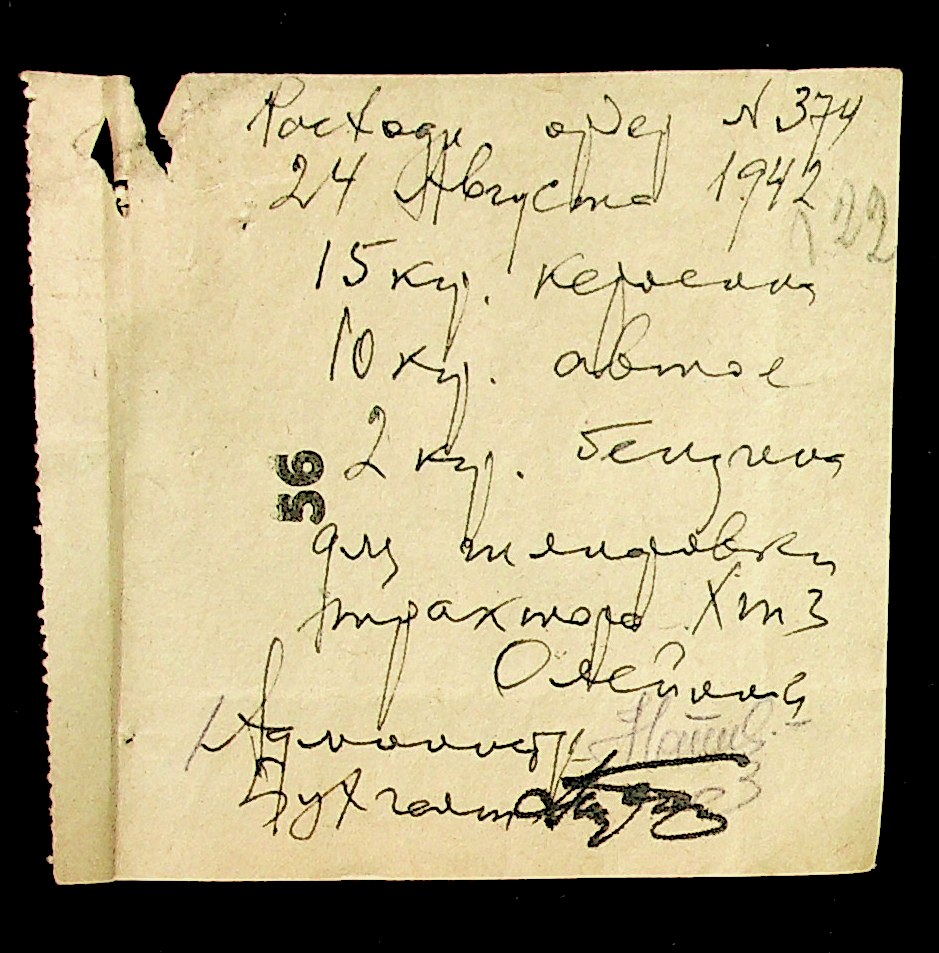 Росходн ордер N 374
24 Августа 1942
122
15 кг. керосина
10 кг. автое
2 кг. бензина
56
для шлифовки
трактора ХТЗ
Олейник
Администр.
Бухгалт